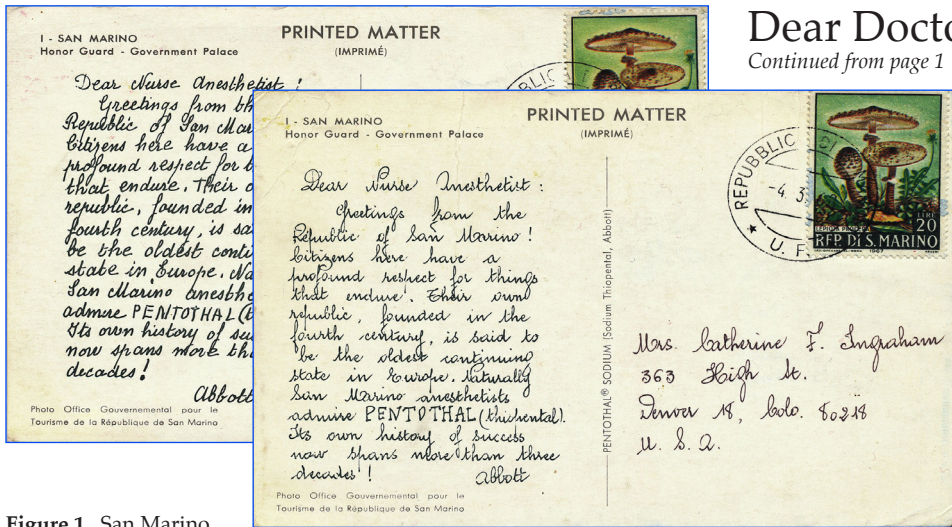 Dear Docto
Continued from page 1
I - SAN MARINO
Honor Guard - Government Palace
PRINTED MATTER
(IMPRIMÉ)
Dear Nurse Anesthetist :
Greetings from th
Republic of San Mar
Citizens here have a
profound respect for t
that endure. Their o
republic, founded in
fourth century, is sa
be the oldest conti
state in Europe. Na
San Marino anesthe
admire PENTOTHAL (t
Its own history of suc
now spans more tha
decades!
Abbott
Photo Office Gouvernemental pour le
Tourisme de la République de San Marino
I - SAN MARINO
Honor Guard - Government Palace
PRINTED MATTER
(IMPRIMÉ)
Dear Nurse Anesthetist :
Greetings from the
Republic of San Marino!
Citizens here have a
profound respect for things
that endure. Their own
republic, founded in the
fourth century, is said to
be the oldest continuing
state in Europe. Naturally
San Marino anesthetists
admire PENTOTHAL (thiopental).
Its own history of success
now spans more than three
decades!
Abbott
Photo Office Gouvernemental pour le
Tourisme de la République de San Marino
PENTOTHAL® SODIUM (Sodium Thiopental, Abbott)
REPUBBLIC
-4. 3
U. F.
LIRE
20
REP. DI S. MARINO
1967
Mrs. Catherine F. Ingraham
363 High St.
Denver 18, Colo. 80218
U. S. A.
Figure 1. San Marino